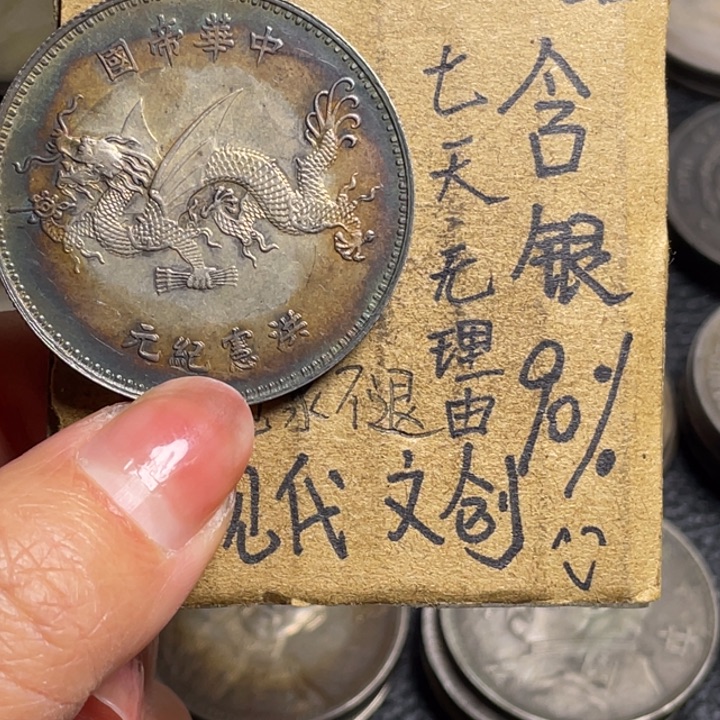 中華帝國
洪憲紀元
含银90%
七天无理由
不退
现代文创